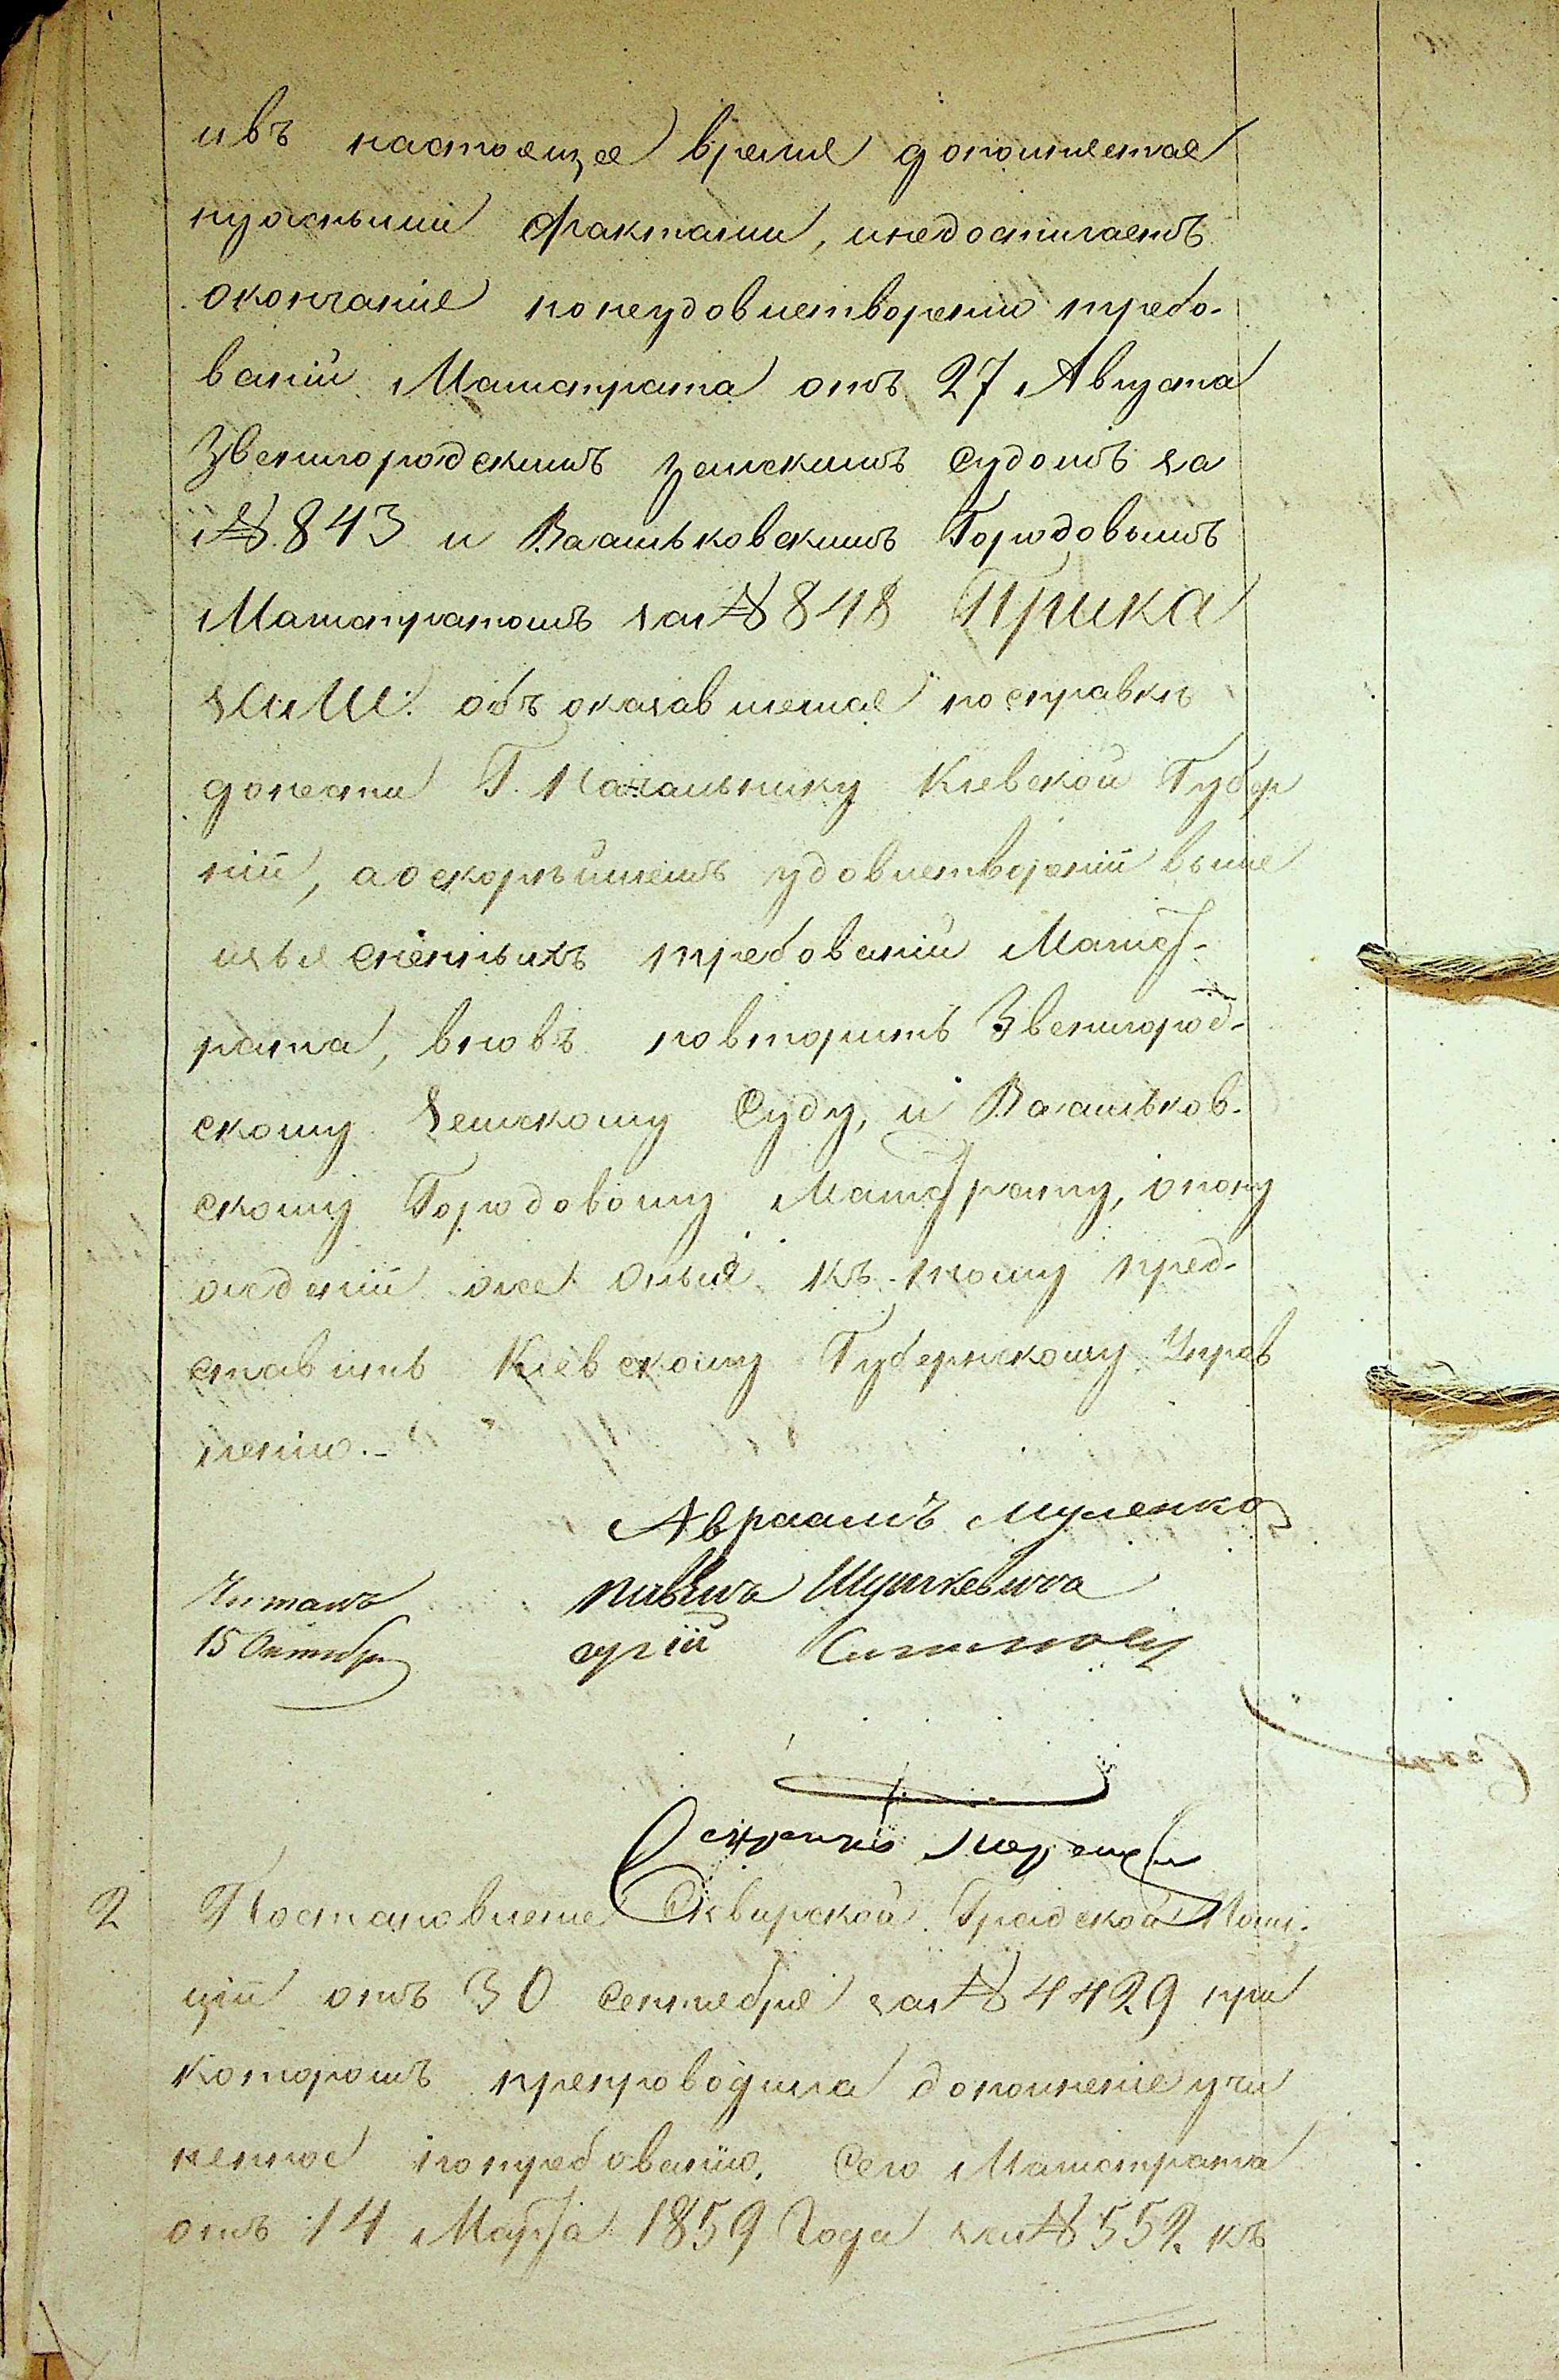 ивъ настоящее время дополняется
нужными фактами, инедостигаетъ
окончанія понеудовлетворенію требо-
ваній Магистрата отъ 27 Августа
Звенигородскимъ земскимъ судомъ за
№ 843 и Васильковскимъ Городовымъ
Магистратомъ за № 848 Прика
зали: объ оказавшемся посправкѣ
донести Г. Начальнику Кіевской Губер
ніи, а оскорѣйшемъ удовлетвореніи выше
изъясненныхъ требованій Магист-
рата, вновь повторить Звенигород-
скому Земскому Суду, и Васильков-
скому Городовому Магистрату, опону
жденіи же оныя къ тому пред-
ставить Кіевскому Губернскому Прав
ленію.-
Авраамъ
Читалъ
15 Октября
Секретарь
2 Постановленіе Сквирской Градской Поли-
ціи отъ 30 Сентября за № 4429 при
которомъ препроводила дополненіе учи
ненное потребованію. Сего Магистрата
отъ 14 Марта 1859 Года за № 552 къ